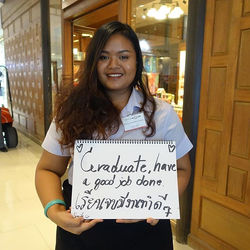 Graduate, have
a good job done.
เรียนจบมีงานทำดีๆ